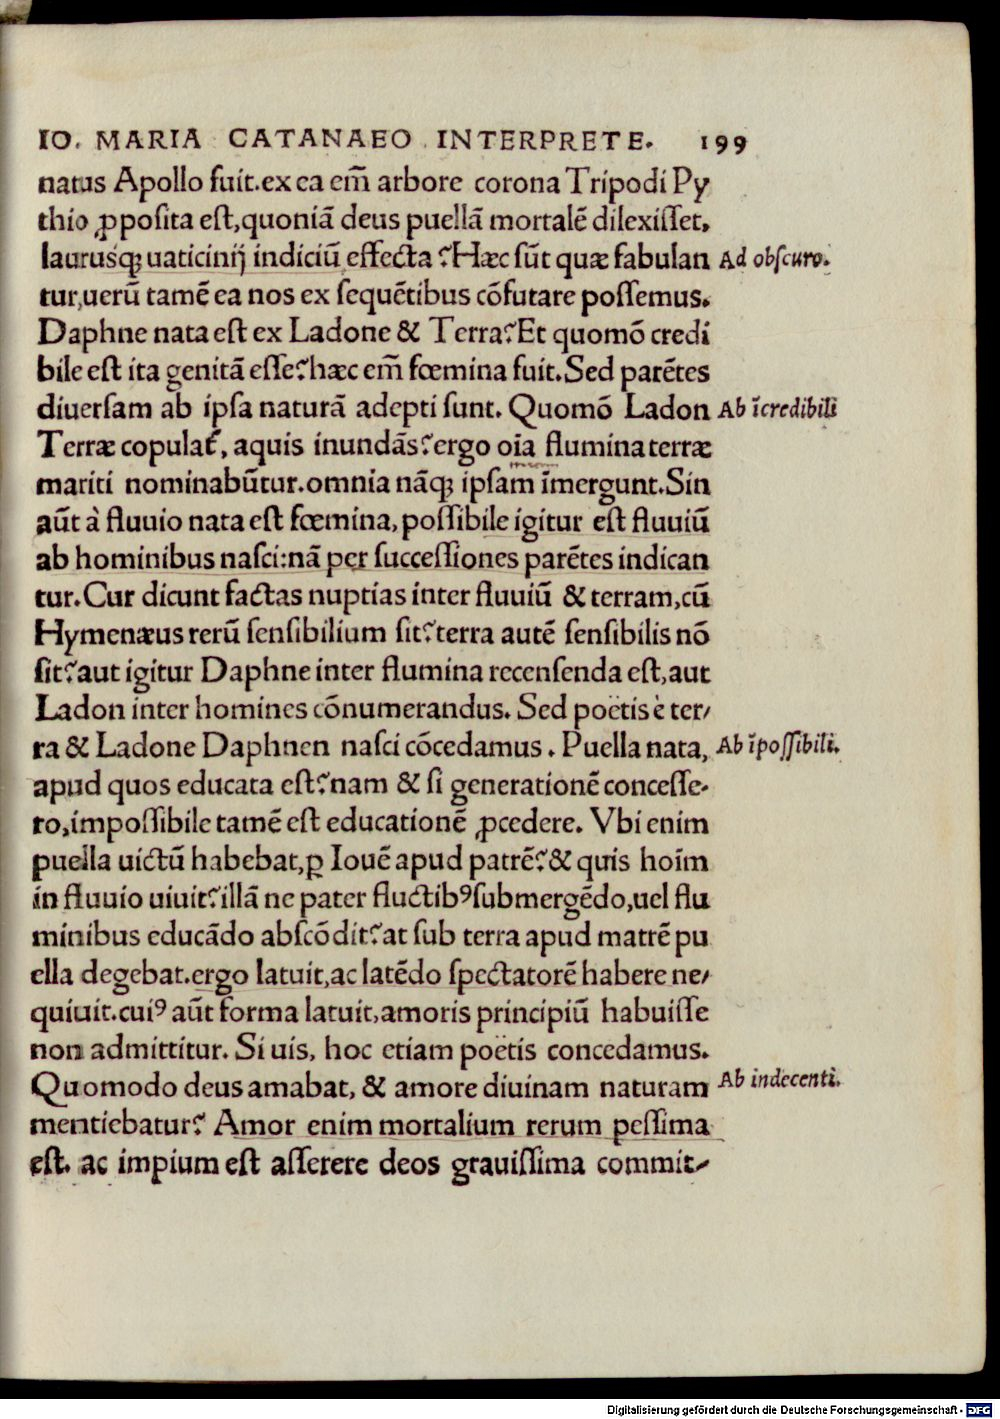 IO. MARIA CATANAEO INTERPRETE. 199
natus Apollo fuit.ex ea em̄ arbore corona Tripodi Py
thio ꝓposita est,quoniā deus puellā mortalē dilexisset,
laurusq́ꝫ uaticinij indiciū effecta? Hæc sūt quæ fabulan
Ad obscuro.
tur,uerū tamē ea nos ex sequētibus cōfutare possemus.
Daphne nata est ex Ladone & Terra? Et quomō credi
bile est ita genitā esse? hæc em̄ fœmina fuit. Sed parētes
diuersam ab ipsa naturā adepti sunt. Quomō Ladon
Ab ĩcredibili
Terræ copulat᷑, aquis inundās? ergo oīa flumina terræ
mariti nominabūtur.omnia nāqꝫ ipsam īmergunt.Sin
aūt à fluuio nata est fœmina, possibile igitur est fluuiū
ab hominibus nasci:nā per successiones parētes indican
tur.Cur dicunt factas nuptias inter fluuiū & terram,cū
Hymenæus rerū sensibilium sit? terra autē sensibilis nō
sit? aut igitur Daphne inter flumina recensenda est,aut
Ladon inter homines cōnumerandus. Sed poëtis è ter/
ra & Ladone Daphnen nasci cōcedamus. Puella nata,
Ab ĩpossibili.
apud quos educata est? nam & si generationē concesse-
ro,impossibile tamē est educationē ꝓcedere. Vbi enim
puella uictū habebat,ꝑ Iouē apud patrē? & quis hoīm
in fluuio uiuit? illā ne pater fluctibꝰ submergēdo,uel flu
minibus educādo abscōdit? at sub terra apud matrē pu
ella degebat.ergo latuit,ac latēdo spectatorē habere ne/
quiuit.cuiꝰ aūt forma latuit,amoris principiū habuisse
non admittitur. Si uis, hoc etiam poëtis concedamus.
Quomodo deus amabat, & amore diuinam naturam
Ab indecenti.
mentiebatur? Amor enim mortalium rerum pessima
est. ac impium est asserere deos grauissima commit/
Digitalisierung gefördert durch die Deutsche Forschungsgemeinschaft - DFG